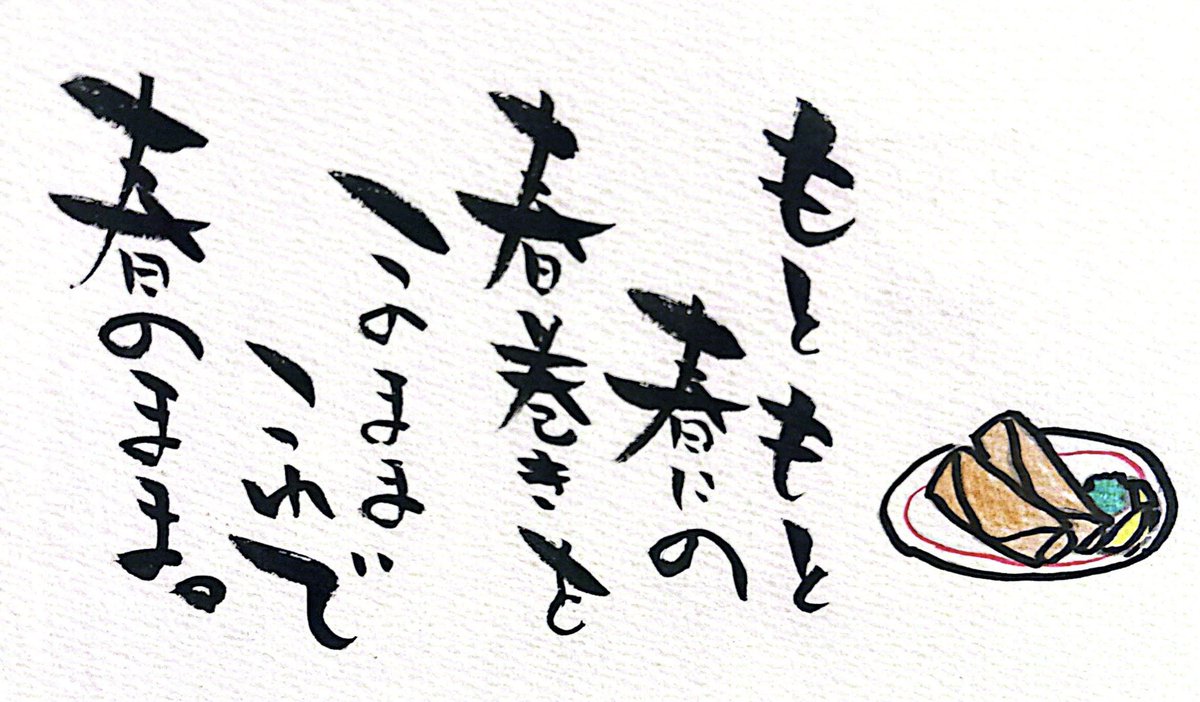 もともと
春にの
春巻きを
このまま
これで
春のまま。